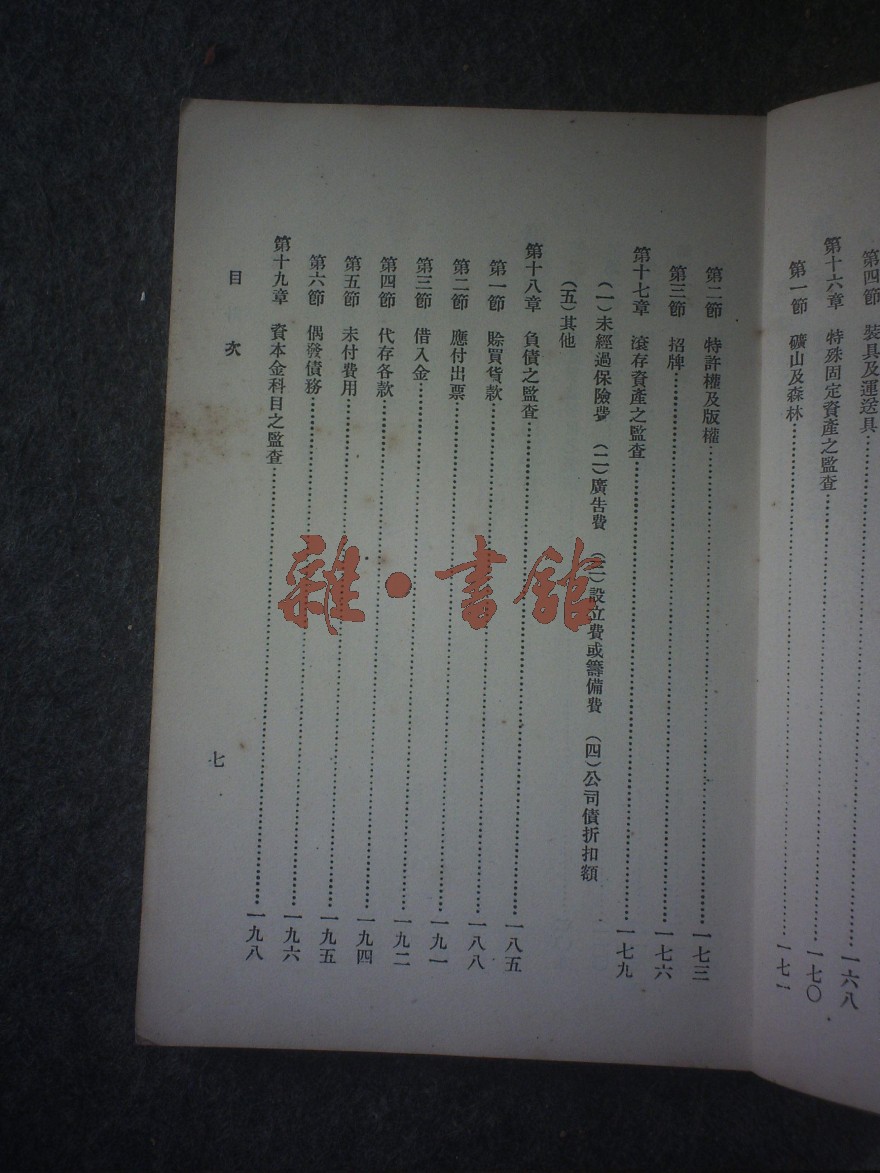 第四節 裝具及運送具……一六八
第十六章 特殊固定資產之監查……一七〇
第一節 礦山及森林……一七一
第二節 特許權及版權……一七三
第三節 招牌……一七六
第十七章 滾存資產之監查……一七九
(一)未經過保險費 (二)廣告費 (三)設立費或籌備費 (四)公司債折扣額
(五)其他
第十八章 負債之監查……一八五
第一節 賒買貨款……一八八
第二節 應付出票……一九一
第三節 借入金……一九二
第四節 代存各款……一九四
第五節 未付費用……一九五
第六節 偶發債務……一九六
第十九章 資本金科目之監查……一九八
目次
七
雜·書館